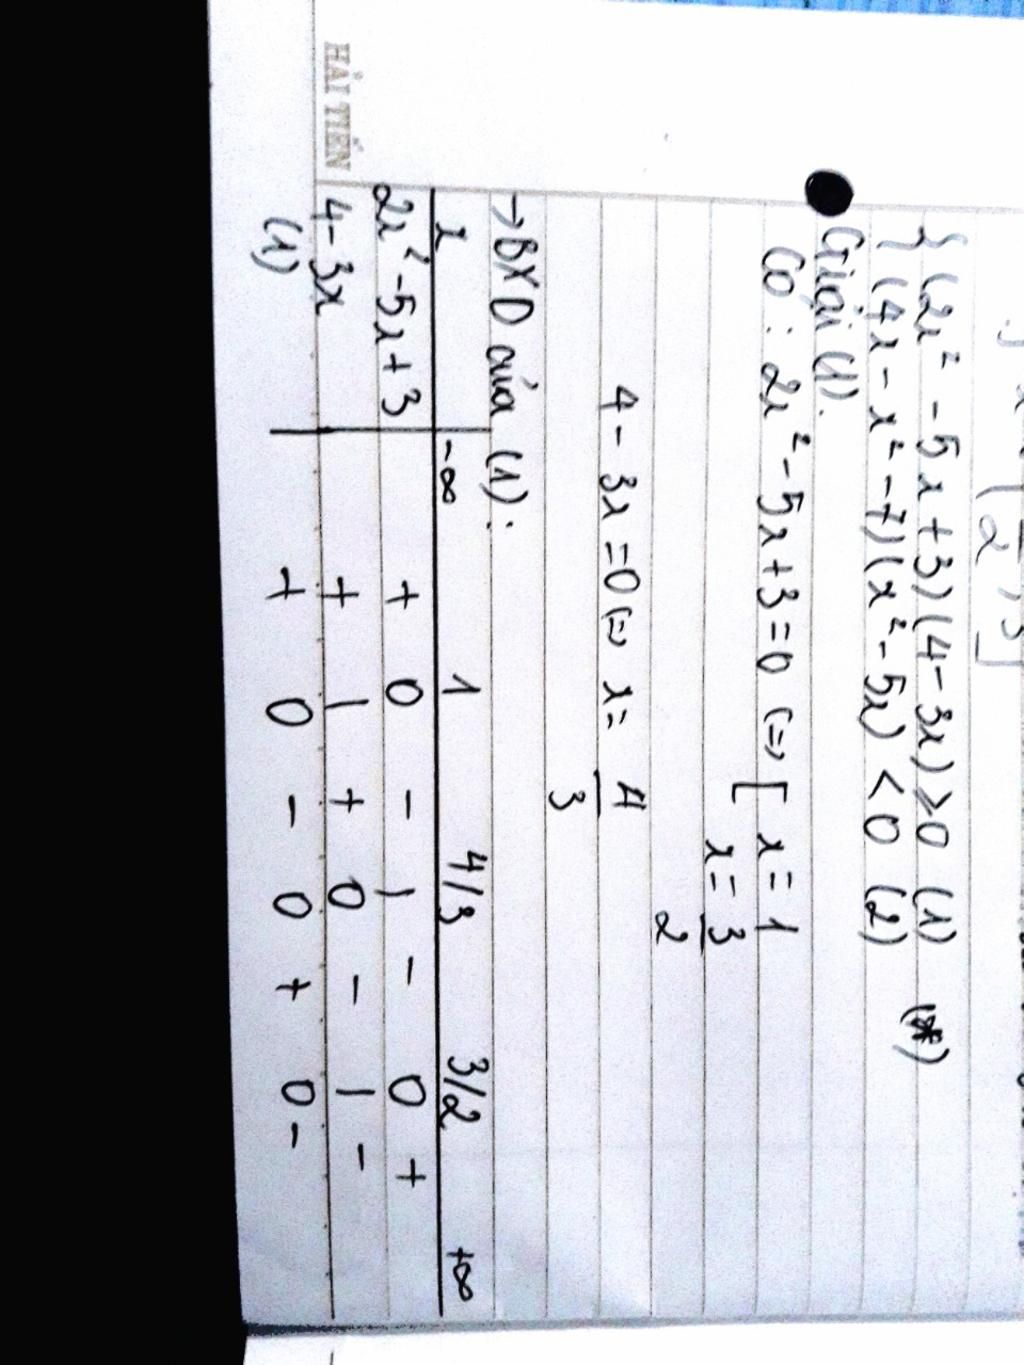 { (2x² - 5x + 3)(4 - 3x) > 0 (1) (*)
(4x - x² - 7)(x² - 5x) < 0 (2)
Giải (1).
Có : 2x² - 5x + 3 = 0 (=) [ x = 1
x = 3/2
4 - 3x = 0 (=) x = 4/3
→ BXD của (1) :
x -∞ 1 4/3 3/2 +∞
2x² - 5x + 3 + 0 - | - 0 +
4 - 3x + | + 0 - | -
(1) + 0 - 0 + 0 -
HẢI TIẾN